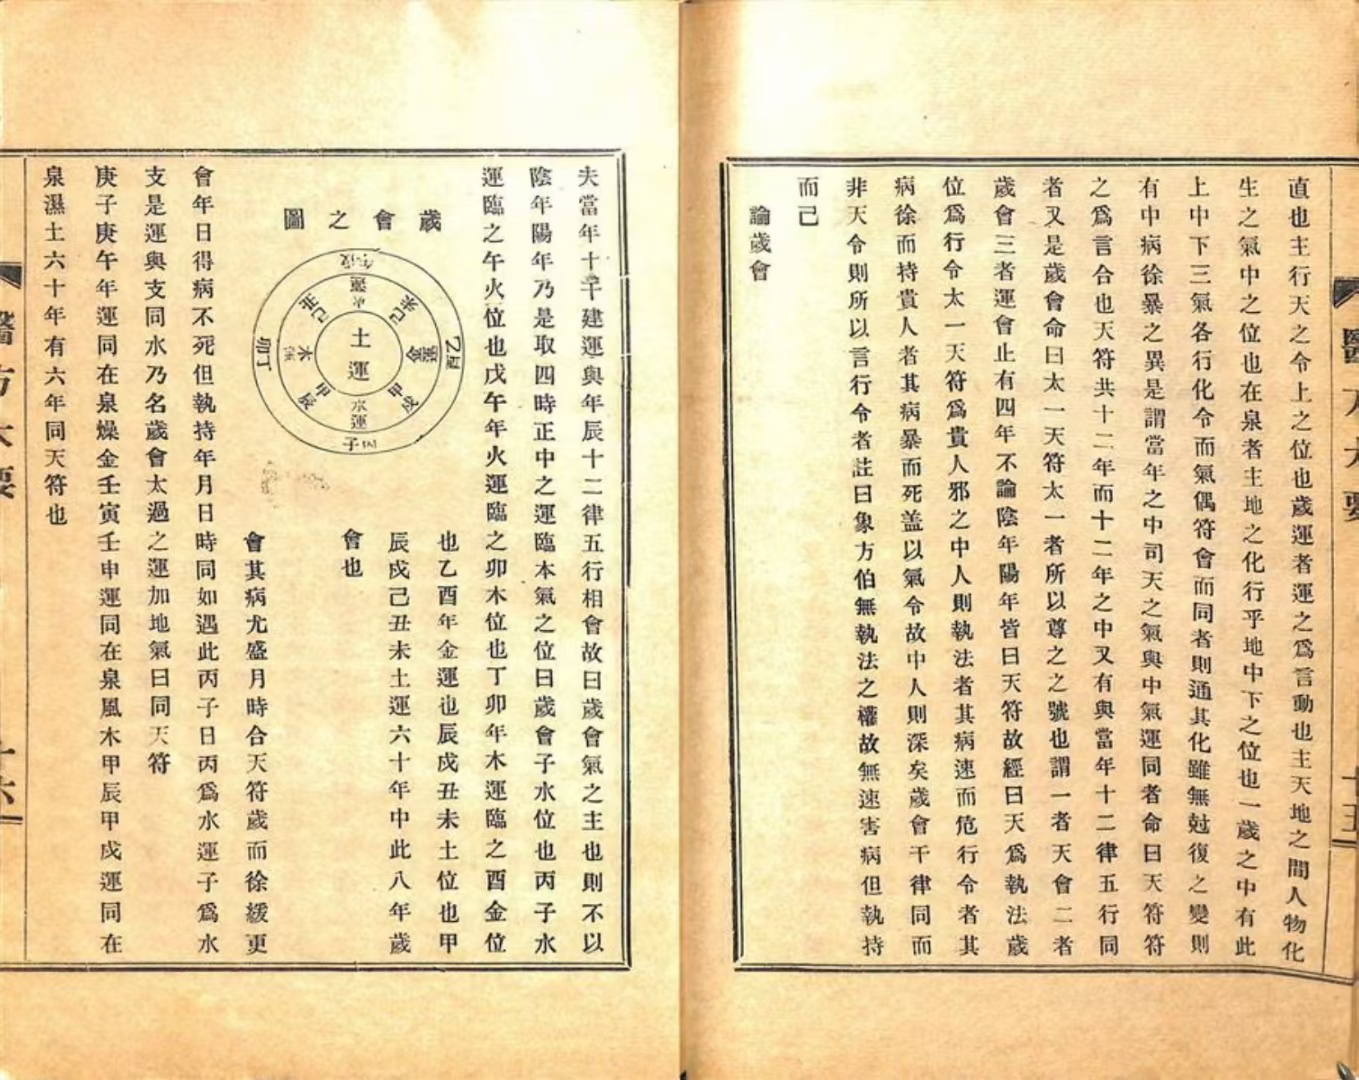 直也主行天之令上之位也歲運者運之爲言動也主天地之間人物化
生之氣中之位也在泉者主地之化行乎地中下之位也一歲之中有此
上中下三氣各行化令而氣偶符會而同者則通其化雖無尅復之變則
有中病徐暴之異是謂當年之中司天之氣與中氣運同者命曰天符符
之爲言合也天符共十二年而十二年之中又有與當年十二律五行同
者又是歲會命曰太一天符太一者所以尊之之號也謂一者天會二者
歲會三者運會止有四年不論陰年陽年皆曰天符故經曰天爲執法歲
位爲行令太一天符爲貴人邪之中人則執法者其病速而危行令者其
病徐而持貴人者其病暴而死盖以氣令故中人則深矣歲會干律同而
非天令則所以言行令者註曰象方伯無執法之權故無速害病但執持
而已
論歲會
醫方大要
十五
夫當年十干建運與年辰十二律五行相會故曰歲會氣之主也則不以
陰年陽年乃是取四時正中之運臨本氣之位曰歲會子水位也丙子水
運臨之午火位也戊午年火運臨之卯木位也丁卯年木運臨之酉金位
也乙酉年金運也辰戌丑未土位也甲
辰戌己丑未土運六十年中此八年歲
會也
歲會之圖
土運
火運
金運
水運
木運
乙酉
丙子
丁卯
戊午
己未
己丑
甲辰
甲戌
會其病尤盛月時合天符歲而徐緩更
會年日得病不死但執持年月日時同如遇此丙子日丙爲水運子爲水
支是運與支同水乃名歲會太過之運加地氣曰同天符
庚子庚午年運同在泉燥金壬寅壬申運同在泉風木甲辰甲戌運同在
泉濕土六十年有六年同天符也
醫方大要
十六